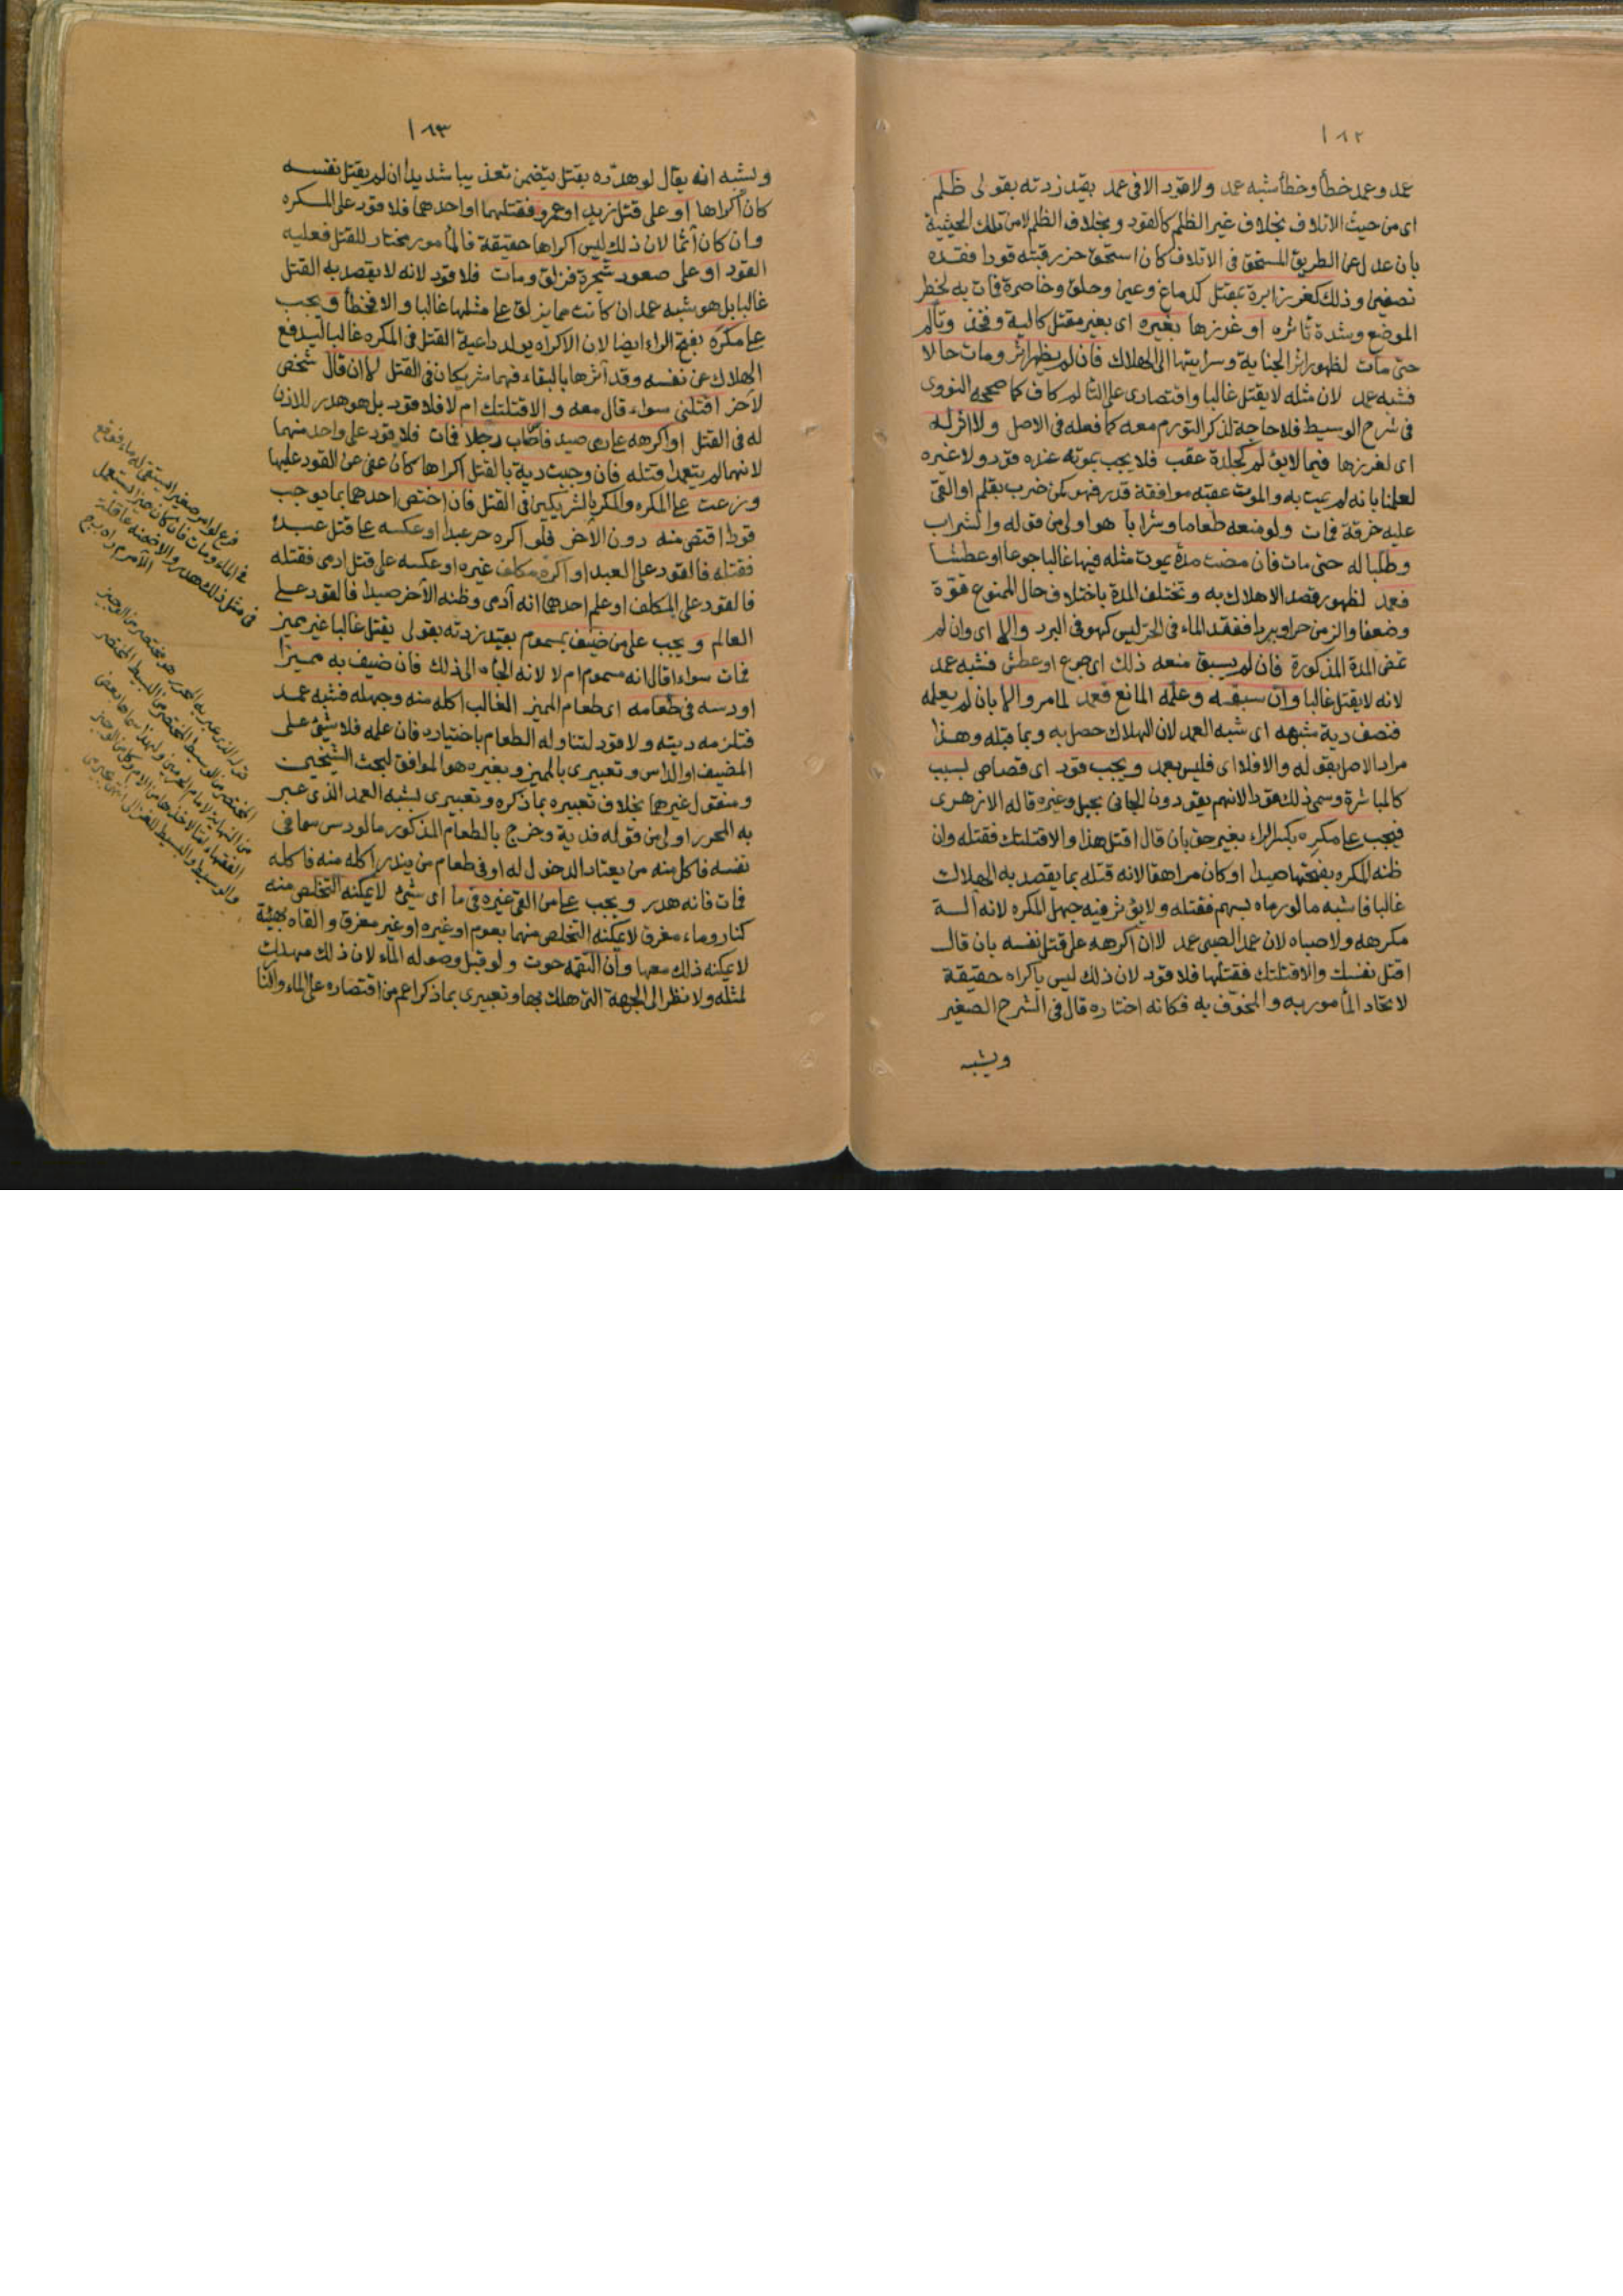 ١٨٢
عمد وعمد خطأ وخطأ شبه عمد ولا قود الا في عمد بقيد زدته بقولي ظلم
اي من حيث الاتلاف بخلاف غير الظلم كالقود وبخلاف الظلم لا من تلك الحيثية
بان عدل عن الطريق المستحق في الاتلاف كان استحق حز رقبته قودا فقده
نصفين وذلك كغرز ابرة بمقتل كدماغ وعين وحلق وخاصرة فمات به لخطر
الموضع وشدة تاثره او غرزها بغيره اي بغير مقتل كالية وفخذ وتألم
حتى مات لظهور اثر الجناية وسرايتها الى الهلاك فان لم يظهر اثر ومات حالا
فشبه عمد لان مثله لا يقتل غالبا واقتصاري على التألم كاف كما صححه النووي
في شرح الوسيط فلا حاجة لذكر التورم معه كما فعله في الاصل ولا اثر له
اي لغرزها فيما لا يؤلم كجلدة عقب فلا يجب بموته عنده قود ولا غيره
لعلمنا بانه لم يمت به والموت عقبه موافقة قدر فهو كمن ضرب بقلم او القي
عليه خرقة فمات ولو منعه طعاما وشرابا هو اولى من قوله والشراب
وطلبا له حتى مات فان مضت مدة يموت مثله فيها غالبا جوعا او عطشا
فعمد لظهور قصد الاهلاك به وتختلف المدة باختلاف حال الممنوع قوة
وضعفا والزمن حرا وبردا ففقد الماء في الحر ليس كهو في البرد والا اي وان لم
تمض المدة المذكورة فان لم يسبق منعه ذلك اي جوع او عطش فشبه عمد
لانه لا يقتل غالبا وان سبقه وعلمه المانع فعمد لما مر والا بان لم يعلمه
فنصف دية شبهه اي شبه العمد لان الهلاك حصل به وبما قبله وهذا
مراد الاصل بقوله والا فلا اي فليس بعمد ويجب قود اي قصاص بسبب
كالمباشرة وسمي ذلك قودا لانهم يقودون الجاني بحبل وغيره قاله الازهري
فيجب على مكره بكسر الراء بغير حق بان قال اقتل هذا والا قتلتك فقتله وان
ظنه المكره بفتحها صيدا او كان مراهقا لانه قتله بما يقصد به الهلاك
غالبا فاشبه ما لو رماه بسهم فقتله ولا يؤثر فيه جهل المكره لانه آلة
مكرهه ولا صباه لان عمد الصبي عمد لا ان اكرهه على قتل نفسه بان قال
اقتل نفسك والا قتلتك فقتلها فلا قود لان ذلك ليس باكراه حقيقة
لاتحاد المأمور به والمخوف به فكانه اختاره قال في الشرح الصغير
ويشبه
١٨٣
ويشبه انه يقال لو هدده بقتل يتضمن تعذيبا شديدا ان لم يقتل نفسه
كان اكراها او على قتل زيد او عمرو فقتلهما او احدهما فلا قود على المكره
وان كان آثما لان ذلك ليس اكراها حقيقة فالمأمور مختار للقتل فعليه
القود او على صعود شجرة فزلق ومات فلا قود لانه لا يقصد به القتل
غالبا بل هو شبه عمد ان كانت مما يزلق على مثلها غالبا والا فخطأ ويجب
على مكره بفتح الراء ايضا لان الاكراه يولد داعية القتل في المكره غالبا ليدفع
الهلاك عن نفسه وقد آثرها بالبقاء فهما شريكان في القتل لا ان قال شخص
لآخر اقتلني سواء قال معه والا قتلتك ام لا فلا قود بل هو هدر للاذن
له في القتل او اكرهه على رمي صيد فاصاب رجلا فمات فلا قود على واحد منهما
لانهما لم يتعمدا قتله فان وجبت دية بالقتل اكراها كان عفي عن القود عليها
وزعت على المكره والمكره الشريكين في القتل فان اختص احدهما بما يوجب
قودا اقتص منه دون الآخر فلو اكره حر عبدا او عكسه على قتل عبد
فقتله فالقود على العبد او اكره مكلف غيره او عكسه على قتل ادمي فقتله
فالقود على المكلف او علم احدهما انه آدمي وظنه الآخر صيدا فالقود على
العالم ويجب على من ضيف بمسموم بقيد زدته بقولي يقتل غالبا غير مميز
فمات سواء اقال انه مسموم ام لا لانه الجاه الى ذلك فان ضيف به مميزا
او دسه في طعامه اي طعام المميز الغالب اكله منه وجهله فشبه عمد
فتلزمه ديته ولا قود لتناوله الطعام باختياره فان علمه فلا شيء على
المضيف او الداس وتعبيري بالمميز وبغيره هو الموافق لبحث الشيخين
ومنقول غيرهما بخلاف تعبيره بما ذكره وتعبيري بشبه العمد الذي عبر
به المحرر اولى من قوله فدية وخرج بالطعام المذكور ما لو دس سما في
نفسه فاكل منه من يعتاد الدخول له او في طعام من يندر اكله منه فاكله
فمات فانه هدر ويجب على من القى غيره في ما اي شيء لا يمكنه التخلص منه
كنار وماء مغرق لا يمكنه التخلص منهما بعوم او غيره او غير مغرق والقاه بهيئة
لا يمكنه ذلك معها وان التقمه حوت ولو قبل وصوله الماء لان ذلك مهلك
لمثله ولا نظر الى الجهة التي هلك بها وتعبيري بما ذكر اعم من اقتصاره على الماء والنا
فرع لو امر صغيرا يستقي له ماء فوقع
في الماء ومات فان كان مميزا يستعمل
في مثل ذلك هدر والا ضمنه عاقلة
الآمر
قوله الذي عبر به المحرر هو مختصر من الوجيز
المختصر من الوسيط المختصر من البسيط المختصر
من النهاية لامام الحرمين